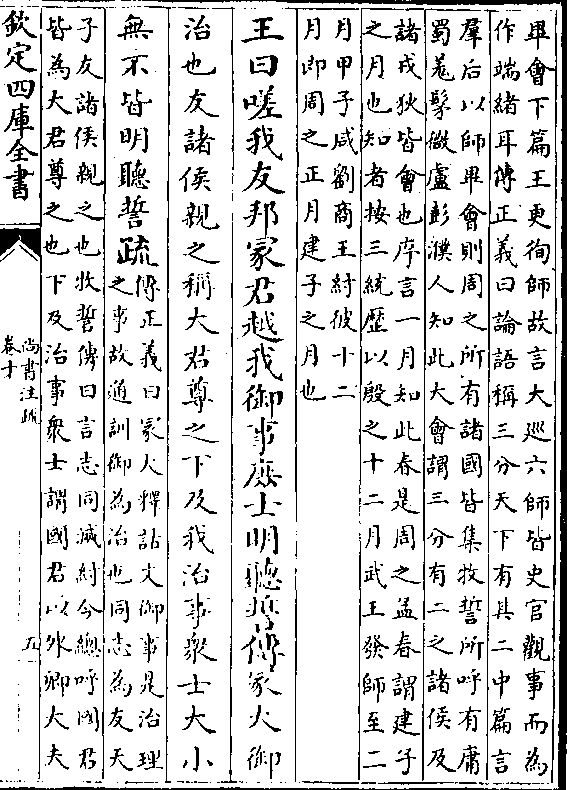 畢會下篇王更徇師故言大巡六師皆史官觀事而為
作端緒耳傳正義曰論語稱三分天下有其二中篇言
羣后以師畢會則周之所有諸國皆集牧誓所呼有庸
蜀羌髳微盧彭濮人知此大會謂三分有二之諸侯及
諸戎狄皆會也序言一月知此春是周之孟春謂建子
之月也知者按三統歷以殷之十二月武王發師至二
月甲子咸劉商王紂彼十二
月即周之正月建子之月也
王曰嗟我友邦冢君越我御事庶士明聽誓傳冢大御
治也友諸侯親之稱大君尊之下及我治事衆士大小
無不皆明聽誓疏
傳正義曰冢大釋詁文御事是治理
之事故通訓御為治也同志為友天
子友諸侯親之也牧誓傳曰言志同滅紂今總呼國君
皆為大君尊之也下及治事衆士謂國君以外卿大夫
欽定四庫全書
尚書注疏
卷十
五